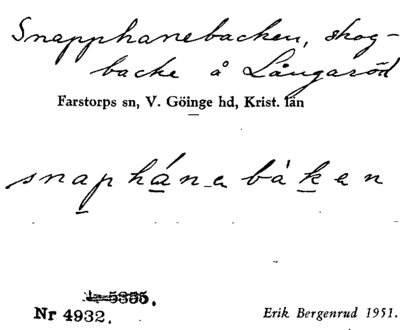 Snapphanebacken, skog-
backe å Långaröd
Farstorps sn, V. Göinge hd, Krist. län
snaphánebàken
Nr 4932.
Erik Bergenrud 1951.